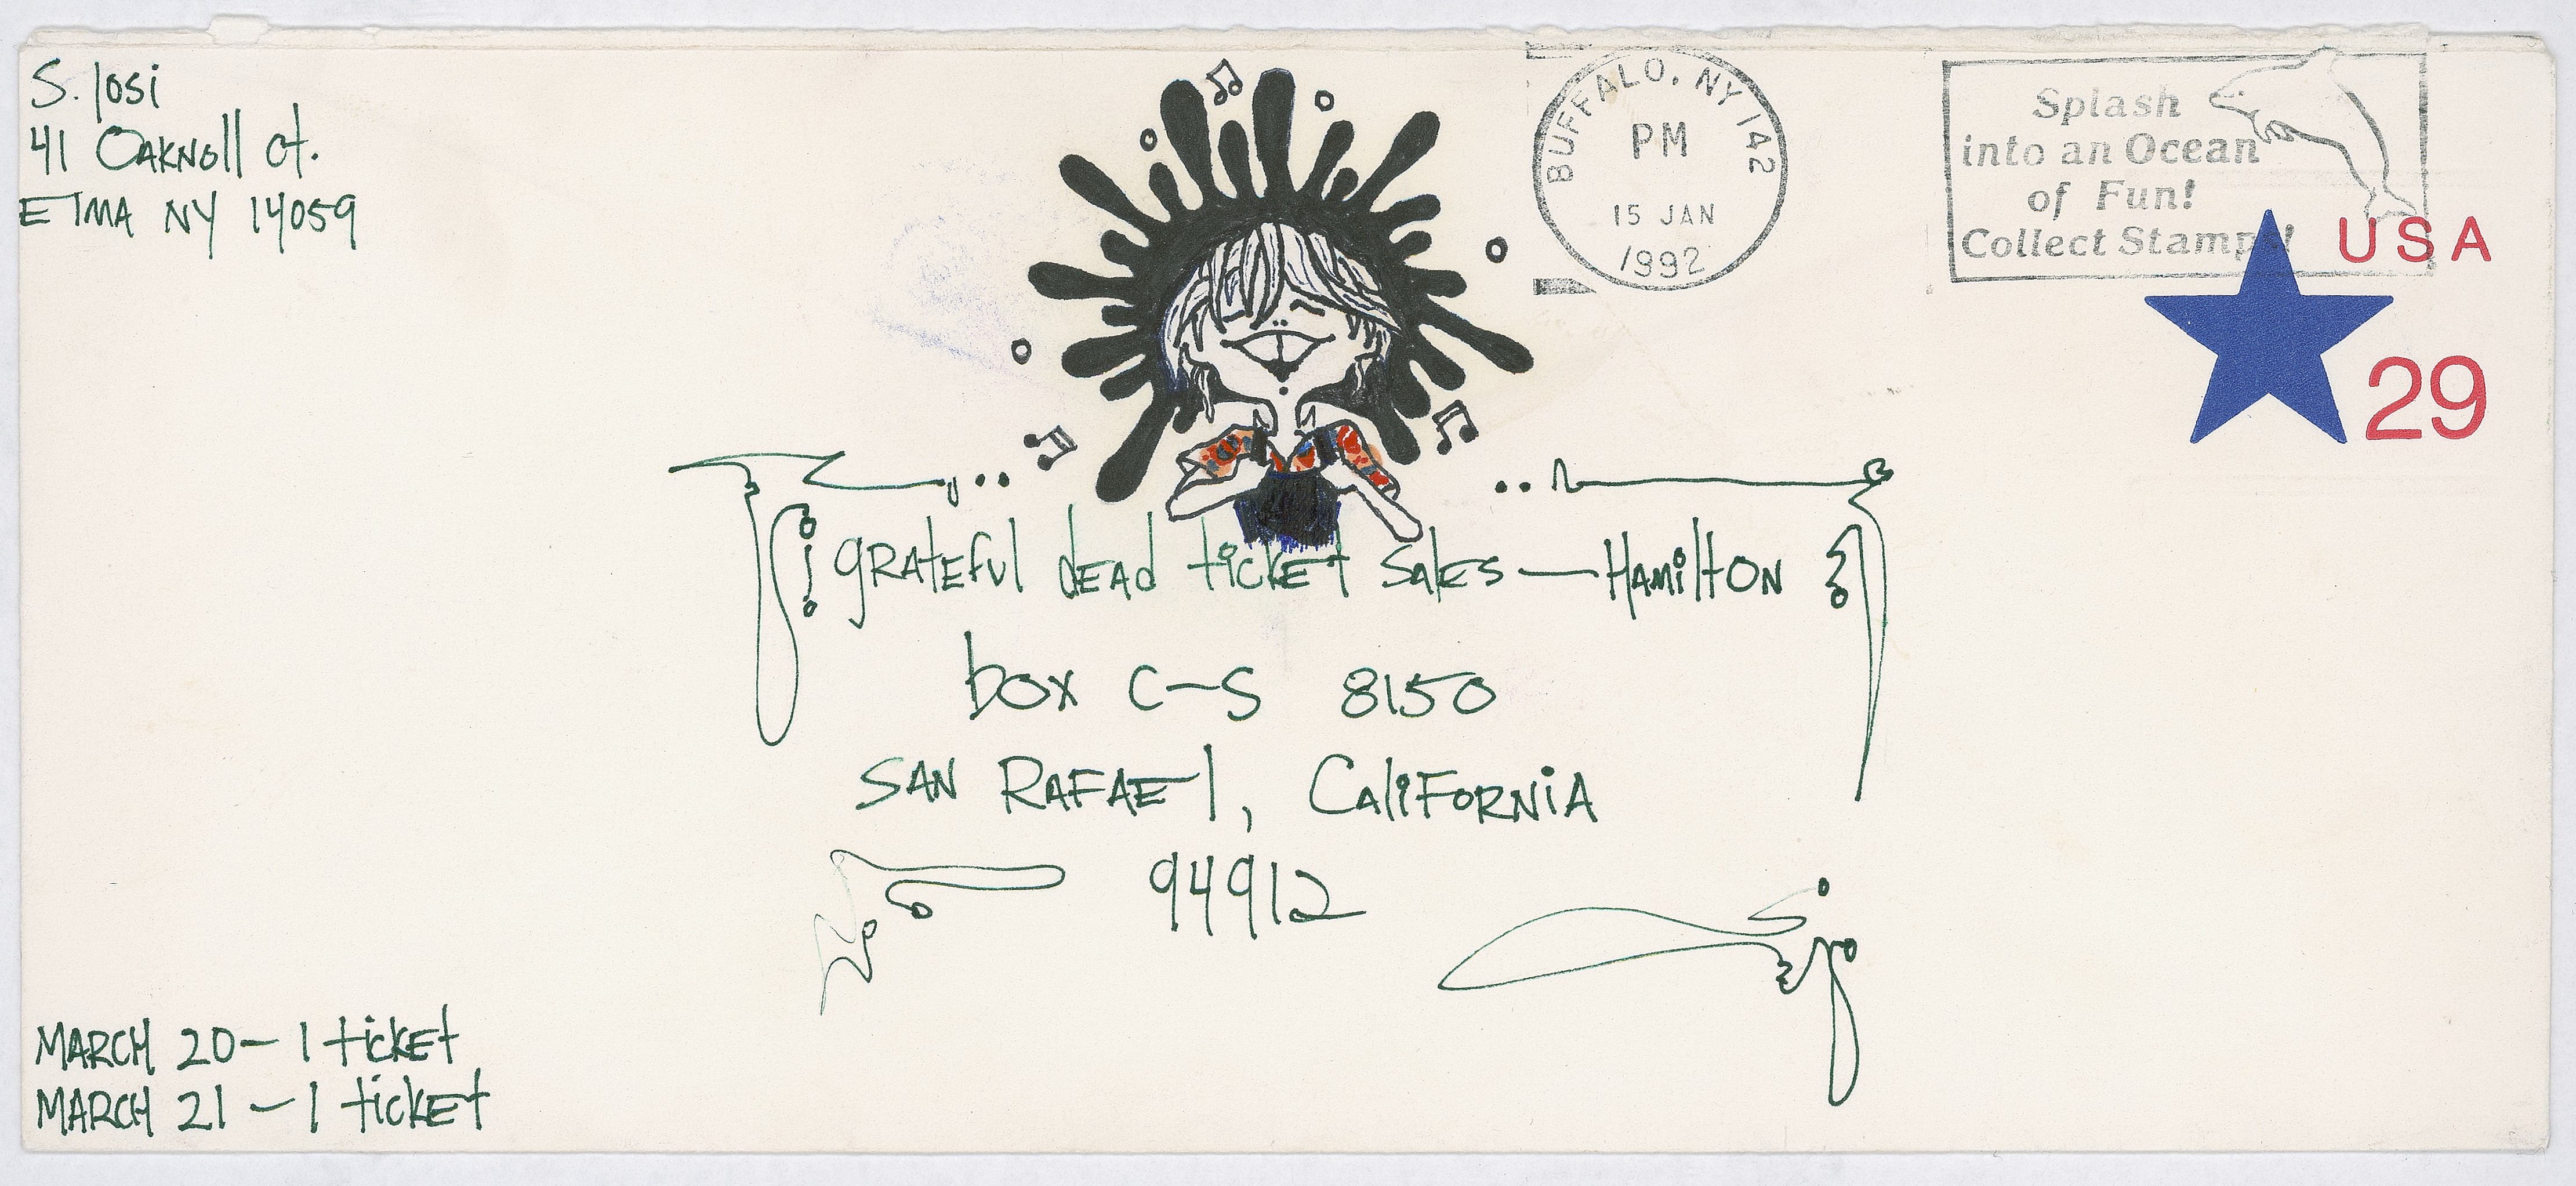 S. Iosi
41 Oaknoll ct.
Elma NY 14059
BUFFALO, NY 142
PM
15 JAN
1992
Splash
into an Ocean
of Fun!
Collect Stamps!
USA
29
grateful dead ticket sales — Hamilton
box C-S 8150
San Rafael, California
94912
March 20 - 1 ticket
March 21 - 1 ticket